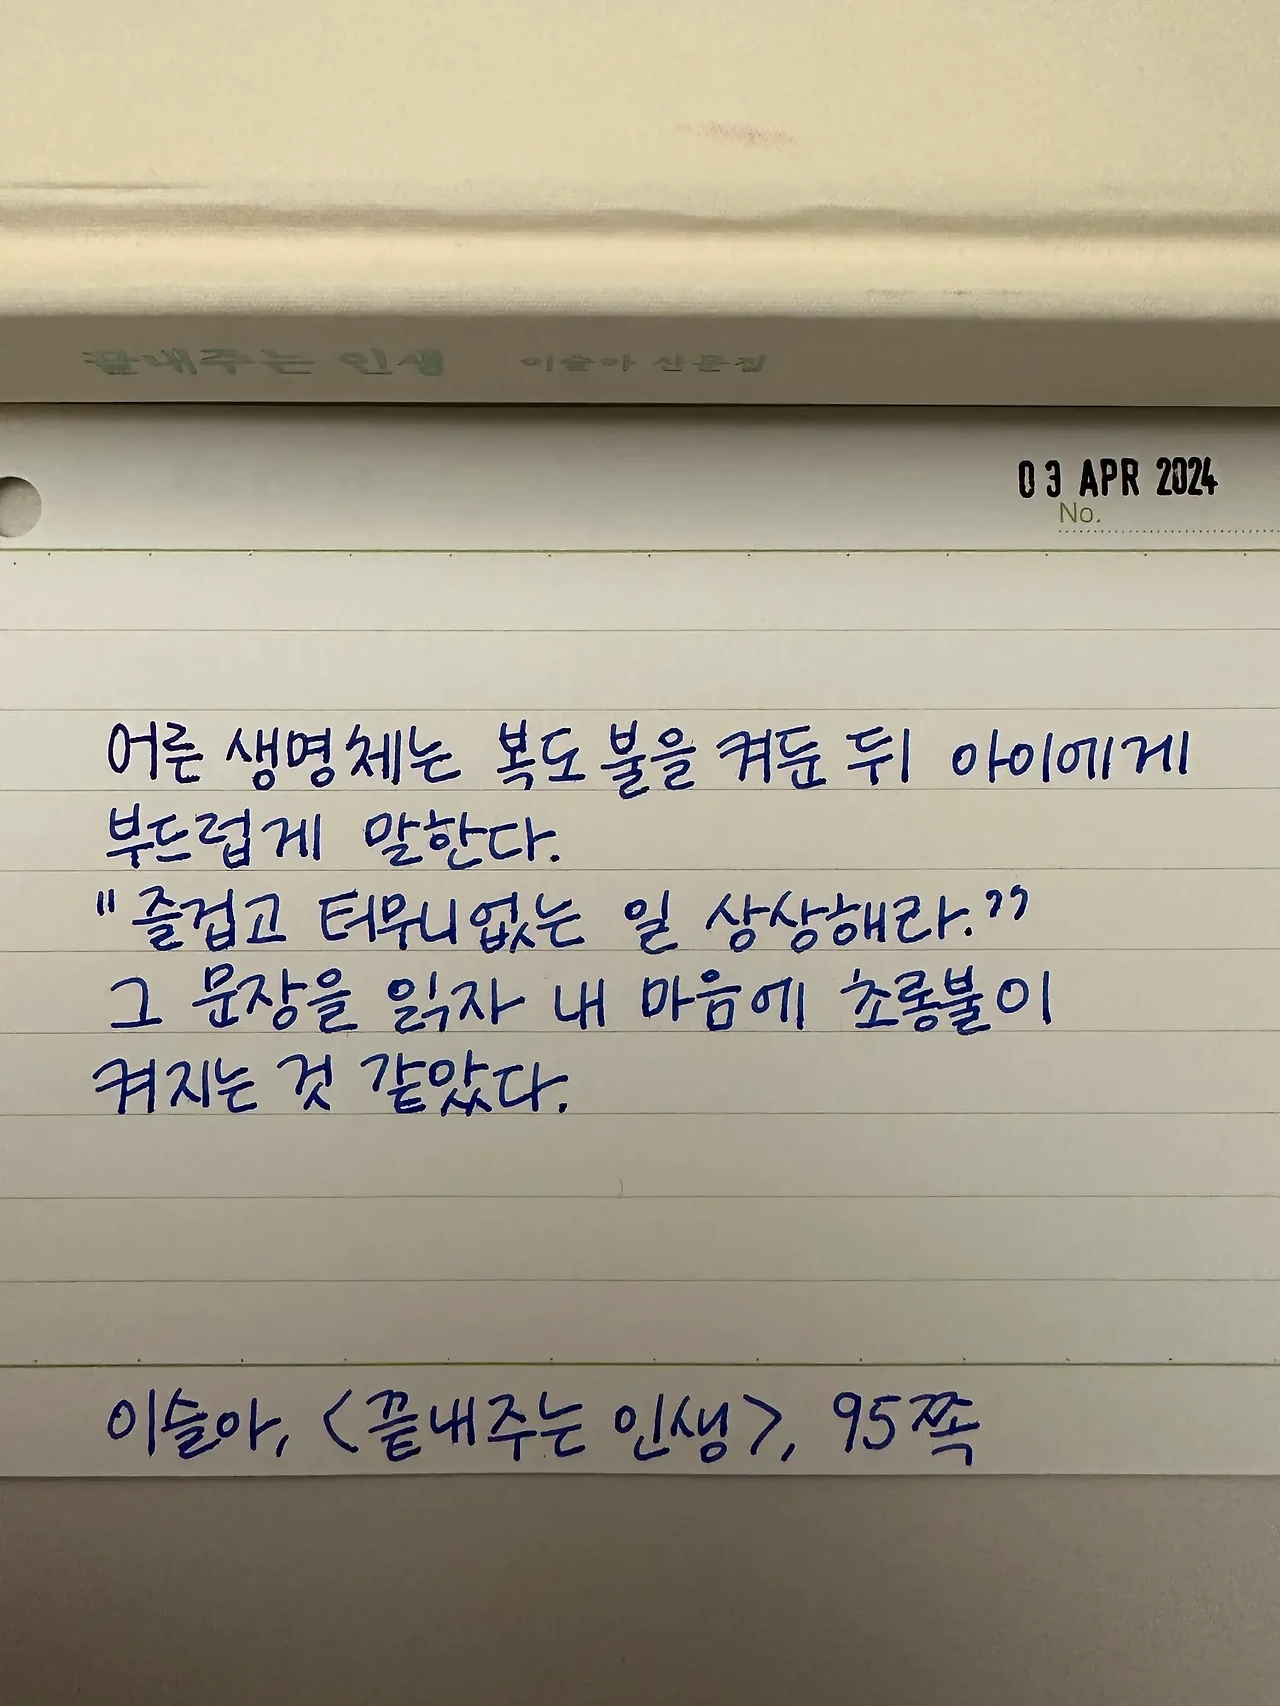 끝내주는 인생 이슬아 산문집
03 APR 2024
No.
어른 생명체는 복도 불을 켜둔 뒤 아이에게
부드럽게 말한다.
"즐겁고 터무니없는 일 상상해라."
그 문장을 읽자 내 마음에 초롱불이
켜지는 것 같았다.
이슬아, <끝내주는 인생>, 95쪽